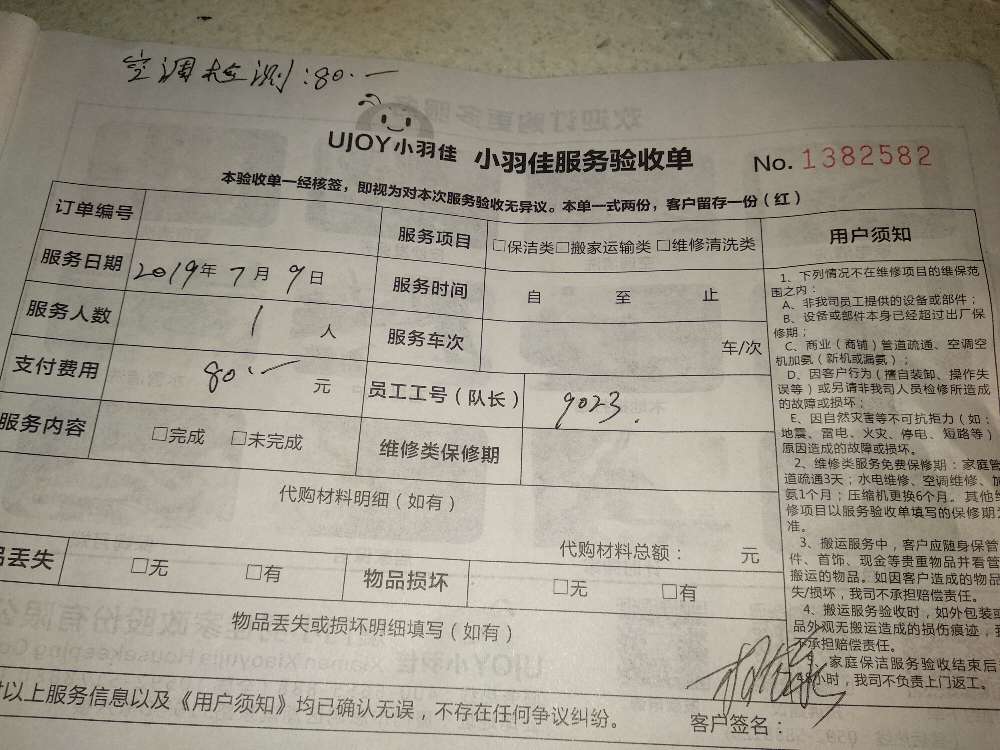 空调检测:80.一
UJOY小羽佳 小羽佳服务验收单 No.1382582
本验收单一经核签，即视为对本次服务验收无异议。本单一式两份，客户留存一份（红）
订单编号 服务项目 □保洁类□搬家运输类 □维修清洗类
服务日期 2019年 7月 9日 服务时间 自 至 止
服务人数 1 人 服务车次 车/次
支付费用 80.一 元 员工工号（队长） 9023.
服务内容 □完成 □未完成 维修类保修期
代购材料明细（如有）
代购材料总额： 元
品丢失 □无 □有 物品损坏 □无 □有
物品丢失或损坏明细填写（如有）
对以上服务信息以及《用户须知》均已确认无误，不存在任何争议纠纷。
客户签名：
用户须知
1、下列情况不在维修项目的维保范
围之内：
A、非我司员工提供的设备或部件；
B、设备或部件本身已经超过出厂保
修期；
C、商业（商铺）管道疏通、空调空
机加氨（新机或漏氨）；
D、因客户行为（擅自装卸、操作失
误等）或另请非我司人员检修所造成
的故障或损坏；
E、因自然灾害等不可抗拒力（如：
地震、雷电、火灾、停电、短路等）
原因造成的故障或损坏。
2、维修类服务免费保修期：家庭管
道疏通3天；水电维修、空调维修、加
氨1个月；压缩机更换6个月。其他维
修项目以服务验收单填写的保修期为
准。
3、搬运服务中，客户应随身保管
件、首饰、现金等贵重物品并看管
搬运的物品。如因客户造成的物品
失/损坏，我司不承担赔偿责任。
4、搬运服务验收时，如外包装或
品外观无搬运造成的损伤痕迹，我
不承担赔偿责任。
家庭保洁服务验收结束后
48小时，我司不负责上门返工。